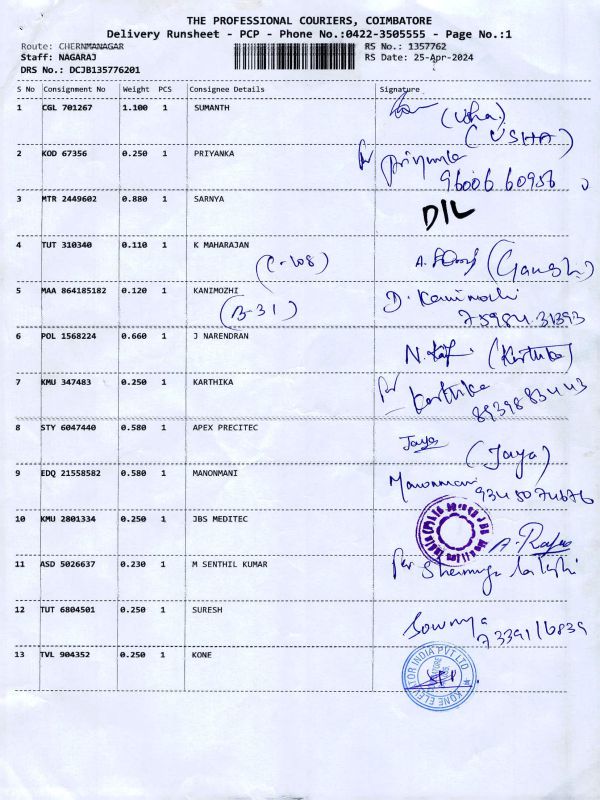 THE PROFESSIONAL COURIERS, COIMBATORE
Delivery Runsheet - PCP - Phone No.:0422-3505555 - Page No.:1
Route: CHERNMANAGAR RS No.: 1357762
Staff: NAGARAJ RS Date: 25-Apr-2024
DRS No.: DCJB135776201
S No Consignment No Weight PCS Consignee Details Signature
1 CGL 701267 1.100 1 SUMANTH (Usha)
(USHA)
2 KOD 67356 0.250 1 PRIYANKA for Priyanka
96006 60956
3 MTR 2449602 0.880 1 SARNYA D/L
4 TUT 310340 0.110 1 K MAHARAJAN
(C-108)
5 MAA 864185182 0.120 1 KANIMOZHI D. Kanimozhi
(B-31) 75984 31393
6 POL 1568224 0.660 1 J NARENDRAN (Karthika)
7 KMU 347483 0.250 1 KARTHIKA for Karthika
8939883443
8 STY 6047440 0.580 1 APEX PRECITEC Jaya (Jaya)
9 EDQ 21558582 0.580 1 MANONMANI Manonmani
9345074676
10 KMU 2801334 0.250 1 JBS MEDITEC
11 ASD 5026637 0.230 1 M SENTHIL KUMAR for
12 TUT 6804501 0.250 1 SURESH Sowmya
7339116839
13 TVL 904352 0.250 1 KONE KONE ELEVATOR INDIA PVT LTD